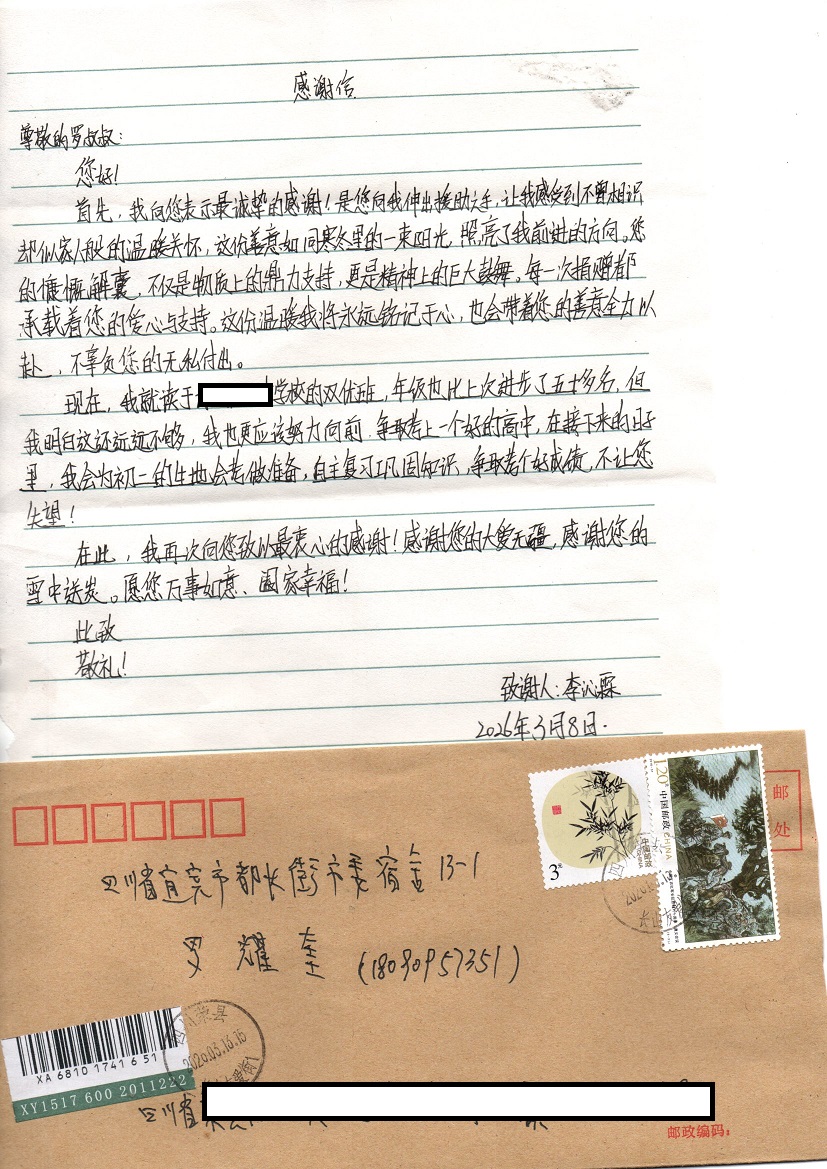 感谢信
尊敬的罗叔叔：
您好！
首先，我向您表示最诚挚的感谢！是您向我伸出援助之手，让我感受到不曾相识
却似家人般的温暖关怀，这份善意如同寒冬里的一束阳光，照亮了我前进的方向。您
的慷慨解囊，不仅是物质上的鼎力支持，更是精神上的巨大鼓舞。每一次捐赠都
承载着您的爱心与支持。这份温暖我将永远铭记于心，也会带着您的善意全力以
赴，不辜负您的无私付出。
现在，我就读于学校的双优班，年级也比上次进步了五十多名，但
我明白这还远远不够，我也更应该努力向前，争取考上一个好的高中，在接下来的日子
里，我会为初二的生地会考做准备，自主复习巩固知识，争取考个好成绩，不让您
失望！
在此，我再次向您致以最衷心的感谢！感谢您的大爱无疆，感谢您的
雪中送炭。愿您万事如意、阖家幸福！
此致
敬礼！
致谢人：李沁霖
2026年3月8日.
邮
处
120分 中国邮政 CHINA
3元
中国邮政
CHINA
四川省宜宾市都长街市委宿舍13-1
罗耀奎 (18090957351)
荣县
2026.03.13.15
XA 6810 1741 6 51
XY1517 600 2011222
四川省
邮政编码：